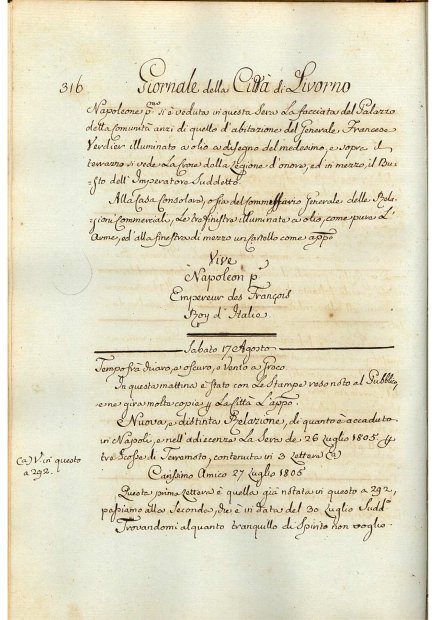 316
Giornale della Città di Livorno
Napoleone p.mo si è veduta in questa Sera La facciata del Palazzo
della Comunità anzi di quello d'abitazione del Generale Francese
Verdier illuminato a olio a disegno del medesimo, e sopra il
terrazzo si vede La Croce della Legione d'onore, ed in mezzo, il Bu=
sto dell'Imperatore Suddetto.
Alla Casa Consolare, o sia del Commessario Generale delle Rela=
zioni Commerciali, Le tre finestre illuminate a olio, come pure L'
Arme, ed alla finestra di mezzo un Cartello come app.o
Vive
Napoleon p.r
Empereur des François
Roy d'Italie
Sabato 17 Agosto
Tempo frà chiaro, e oscuro, e Vento a Greco
In questa mattina è stato con Le Stampe reso noto al Pubblico,
e ne gira molte copie p La Città L'app.o
Nuova, e distinta Relazione, di quanto è accaduto
in Napoli, e nell'adiecenze La Sera de 26 Luglio 1805. p
tre scosse di Terremoto, contenuta in 3 Lettere (a)
(a) V. in questo
a 292.
Carissimo Amico 27 Luglio 1805
Questa prima Lettera è quella già notata in questo a 292,
passiamo alla Seconda, che è in data del 30 Luglio Sudd.o
Trovandomi alquanto tranquillo di Spirito non voglio